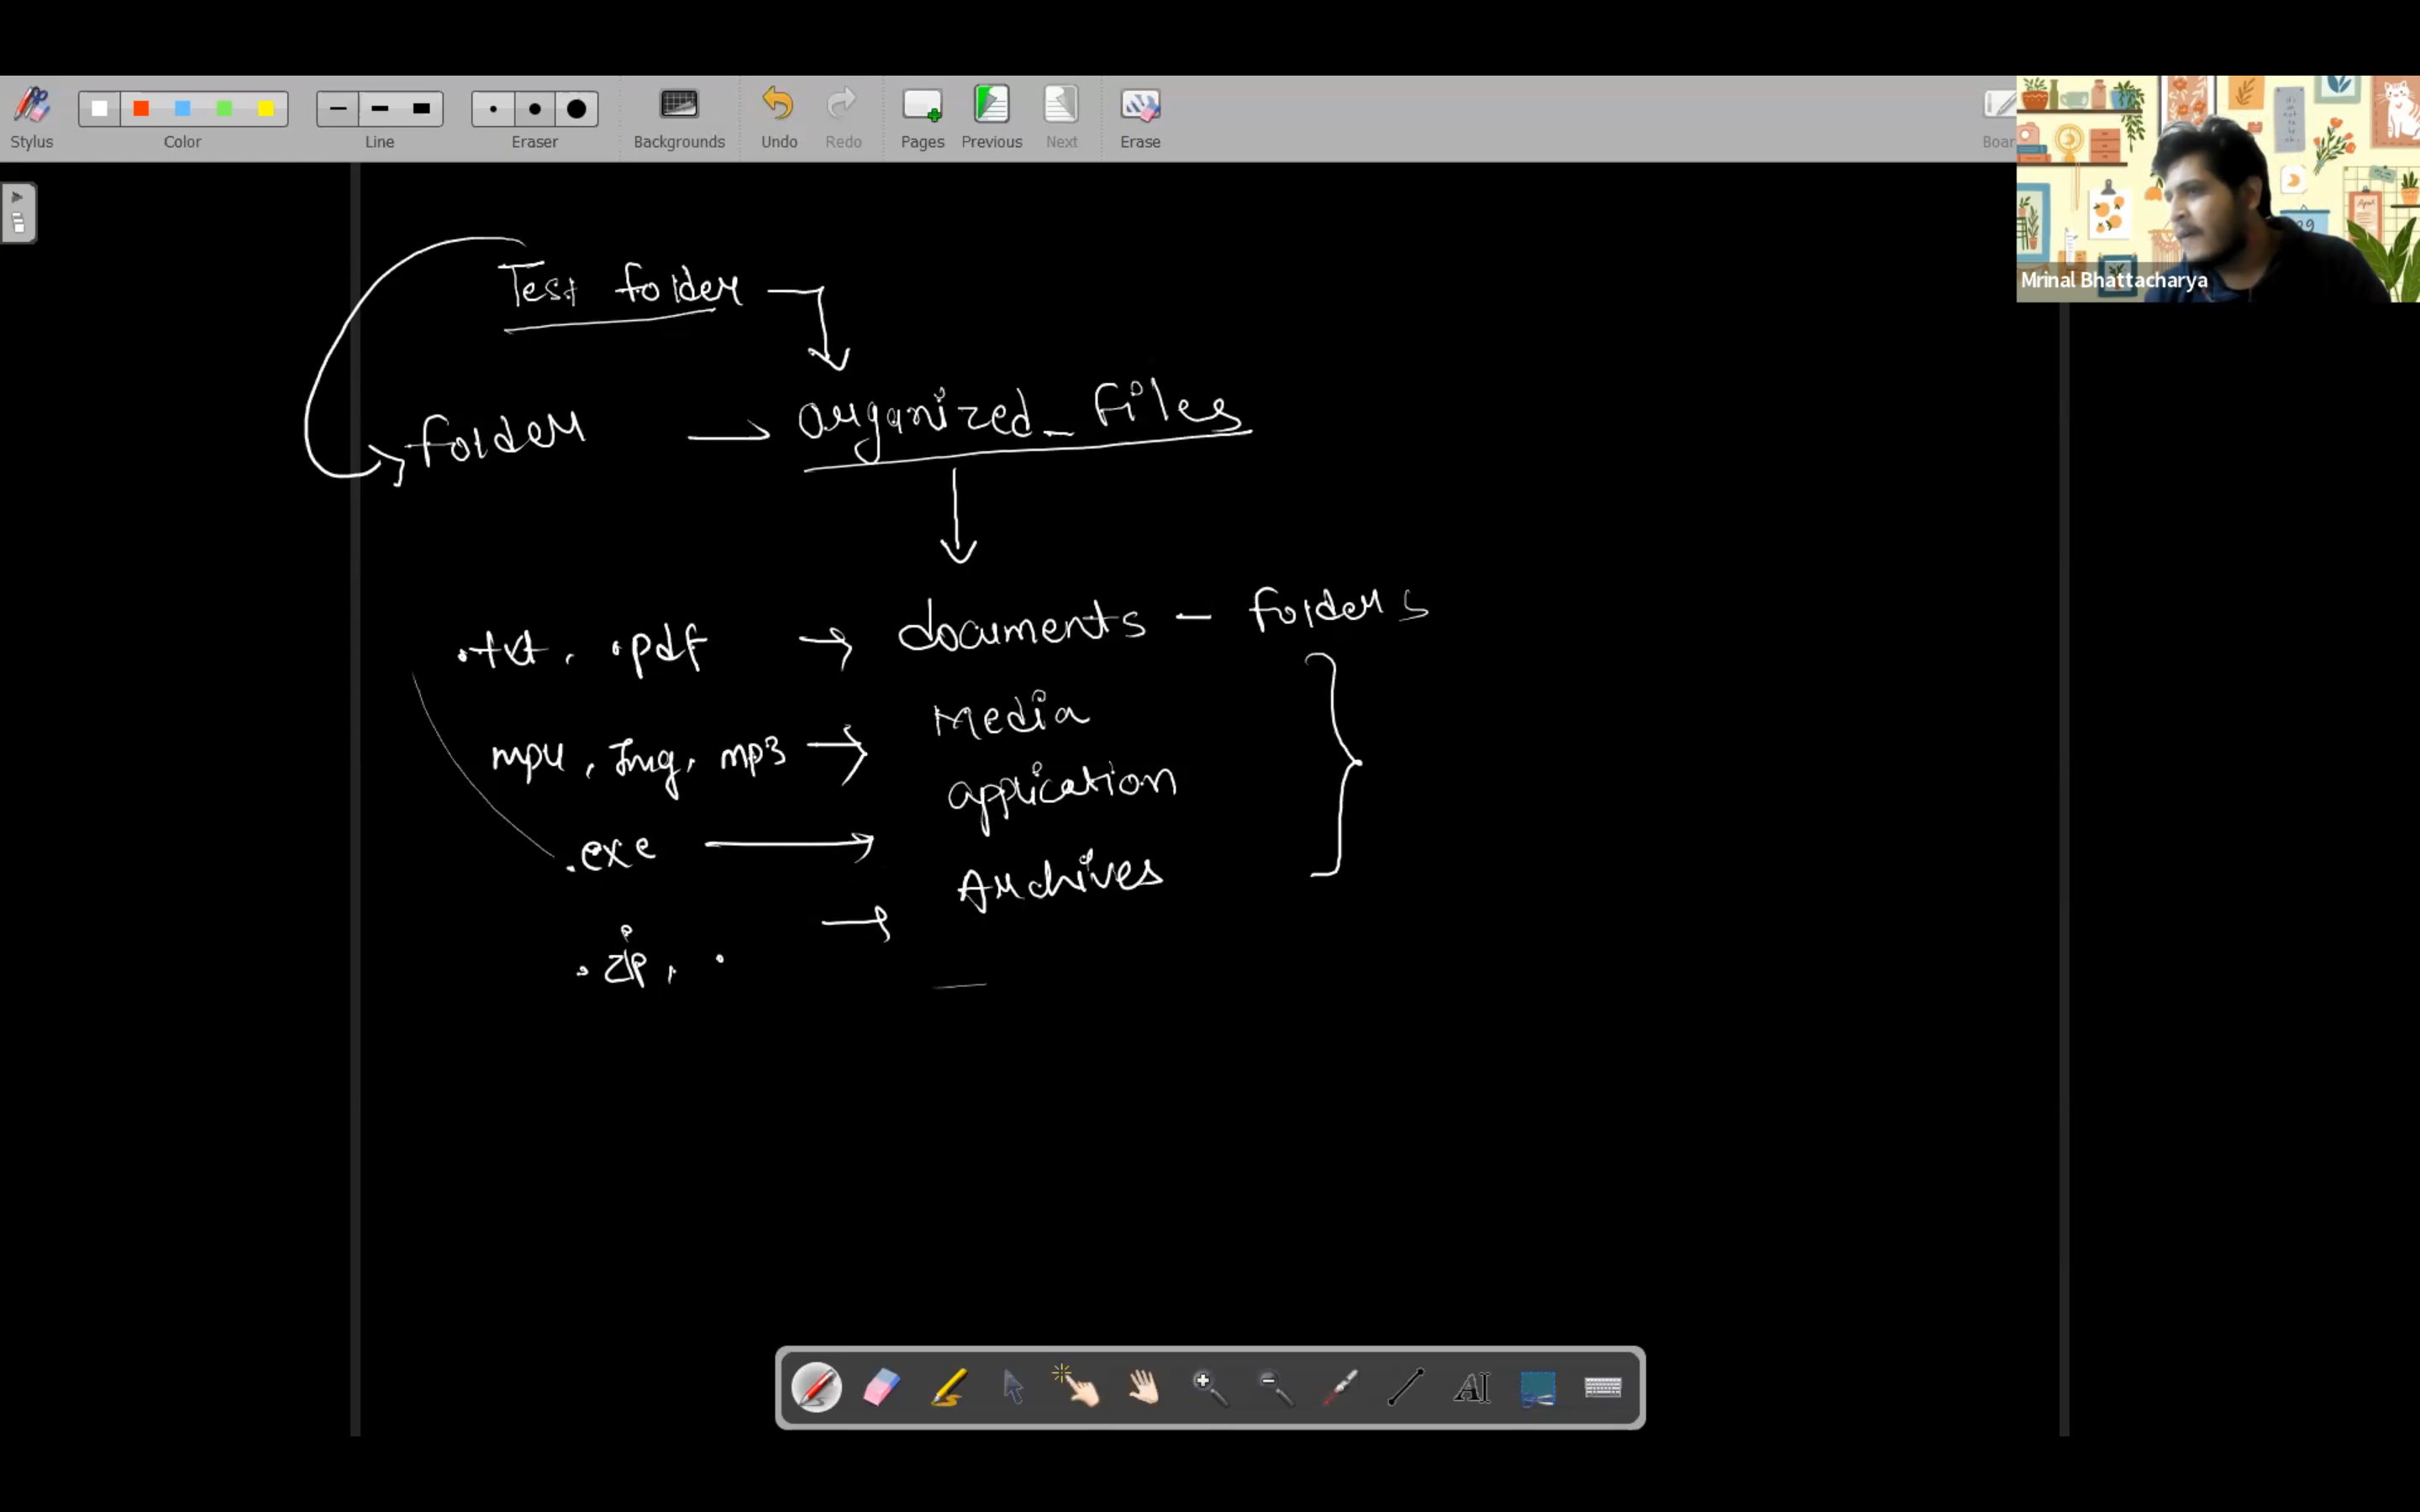 Stylus Color Line Eraser Backgrounds Undo Redo Pages Previous Next Erase Boar
Mrinal Bhattacharya
Test folder
folder → organized_files
.txt, .pdf → documents - folders
mp4, Img, mp3 → Media
application
.exe → Archives
.zip, . →
AI